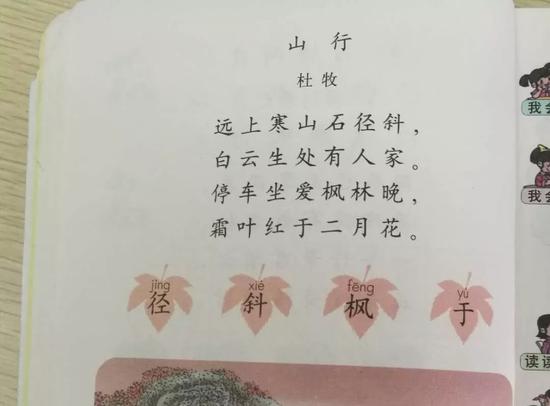 山 行
杜 牧
远上寒山石径斜，
白云生处有人家。
停车坐爱枫林晚，
霜叶红于二月花。
jìng xié fēng yú
径 斜 枫 于
我会
我会
读读